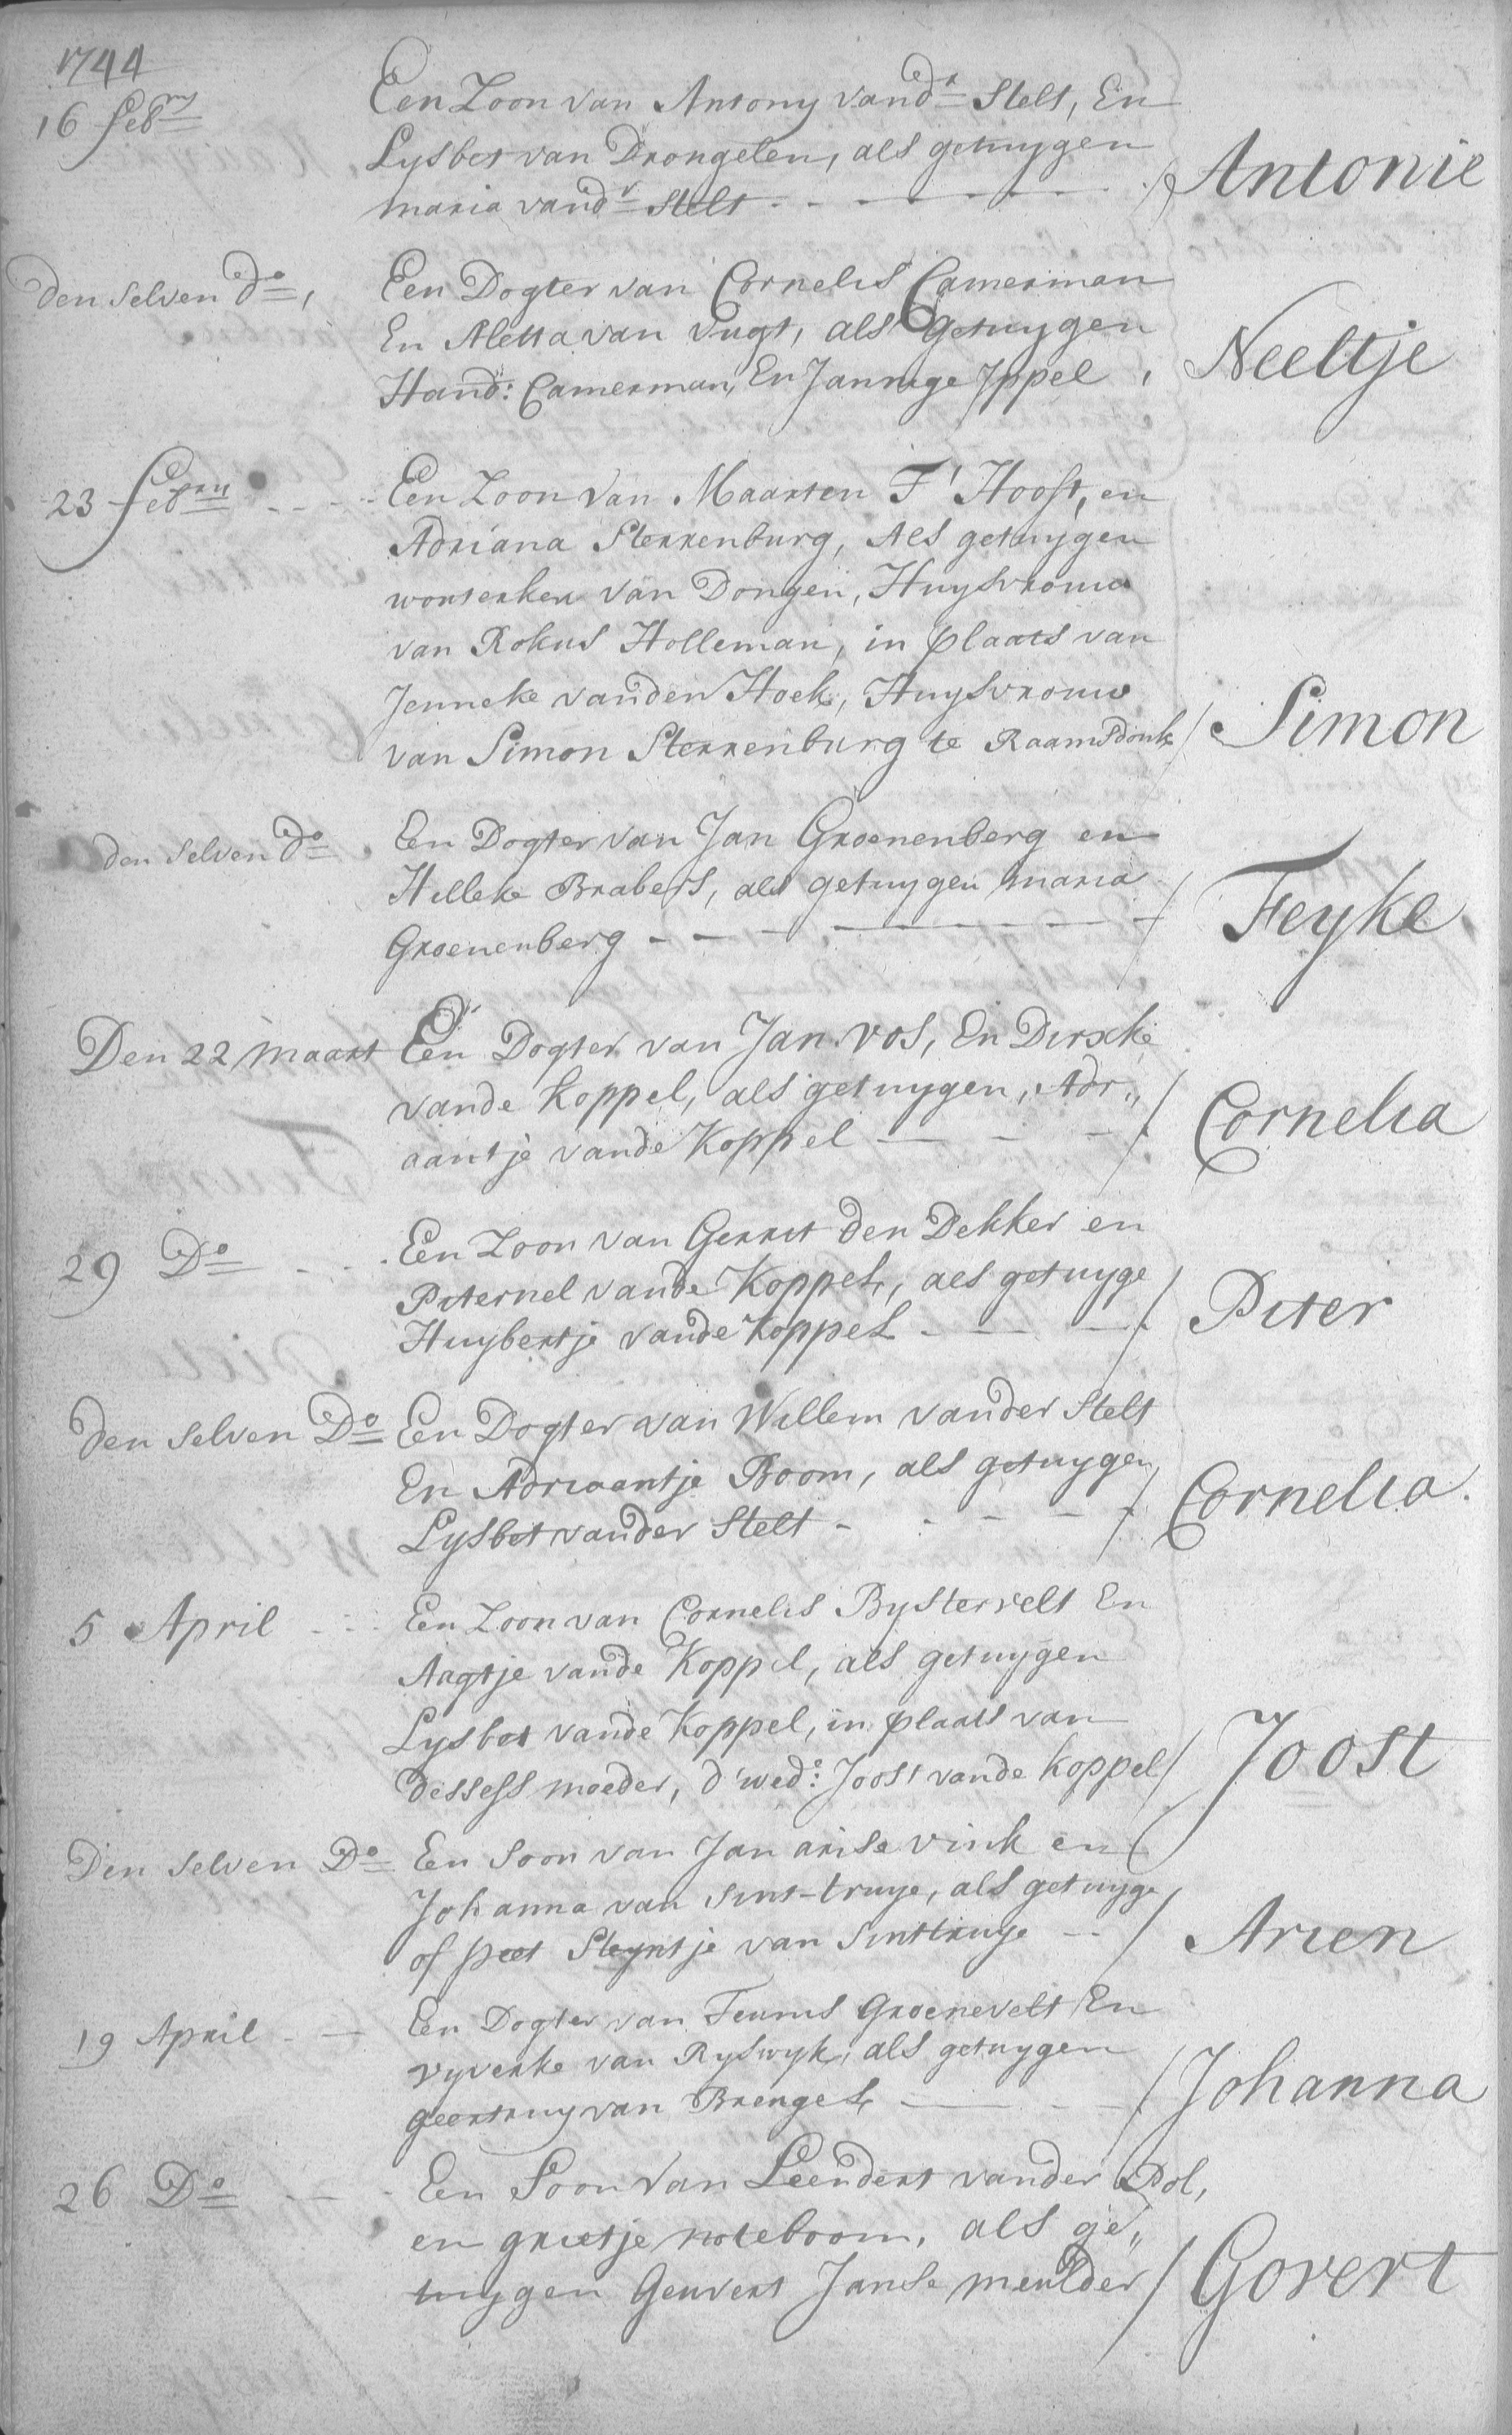 1744
16 feb.ry Een Zoon van Antony vand.r Stelt, En
Lysbet van Drongelen, als getuygen
maria vand.r Stelt - - - - - / Antonie
den selven do, Een Dogter van Cornelis Camerman
En Aletta van Vugt, als getuygen
Hend: Camerman, En Jannige Ippel, Neeltje
23 feb.ru - - - Een Zoon van Maarten T' Hooft, en
Adriana Sterrenburg, Als getuygen
wouterken van Dongen, Huysvrouw
van Rokus Holleman, in plaats van
Jenneke vanden Hoek, Huysvrouw
van Simon Sterrenburg te Raamsdonk / Simon
den selven do Een Dogter van Jan Groenenberg en
Hilleke Brabers, als getuygen maria
Groenenberg - - - - - / Feyke
Den 22 maart Een Dogter van Jan Vos, En Dirxke
vande Koppel, als getuygen, Adr„
aantje vande Koppel - - - / Cornelia
29 Do - - - Een Zoon van Gerrit den Dekker en
Piternel vande Koppel, als getuyge
Huybertje vande Koppel - - - / Piter
den selven Do Een Dogter van Willem vander Stelt
En Adriaantje Boom, als getuygen
Lysbet vander Stelt - - - - / Cornelia.
5 April - - - Een Zoon van Cornelis Bystervelt En
Aagtje vande Koppel, als getuygen
Lysbet vande Koppel, in plaats van
desselfs moeder, d'wede: Joost vande Koppel / Joost
Den selven Do Een Soon van Jan arise Vink en
Johanna van Sint-truye, als getuyge
of peet Steyntje van Sinttruye - - / Arien
19 April - - Een Dogter van Teunis Groenevelt En
vyverke van Ryswyk, als getuygen
geertruy van Brengel - - - / Johanna
26 Do - - - Een Soon van Leendert vander Pol,
en grietje noteboom, als ge„
tuygen Geuvert Janse meulder / Govert